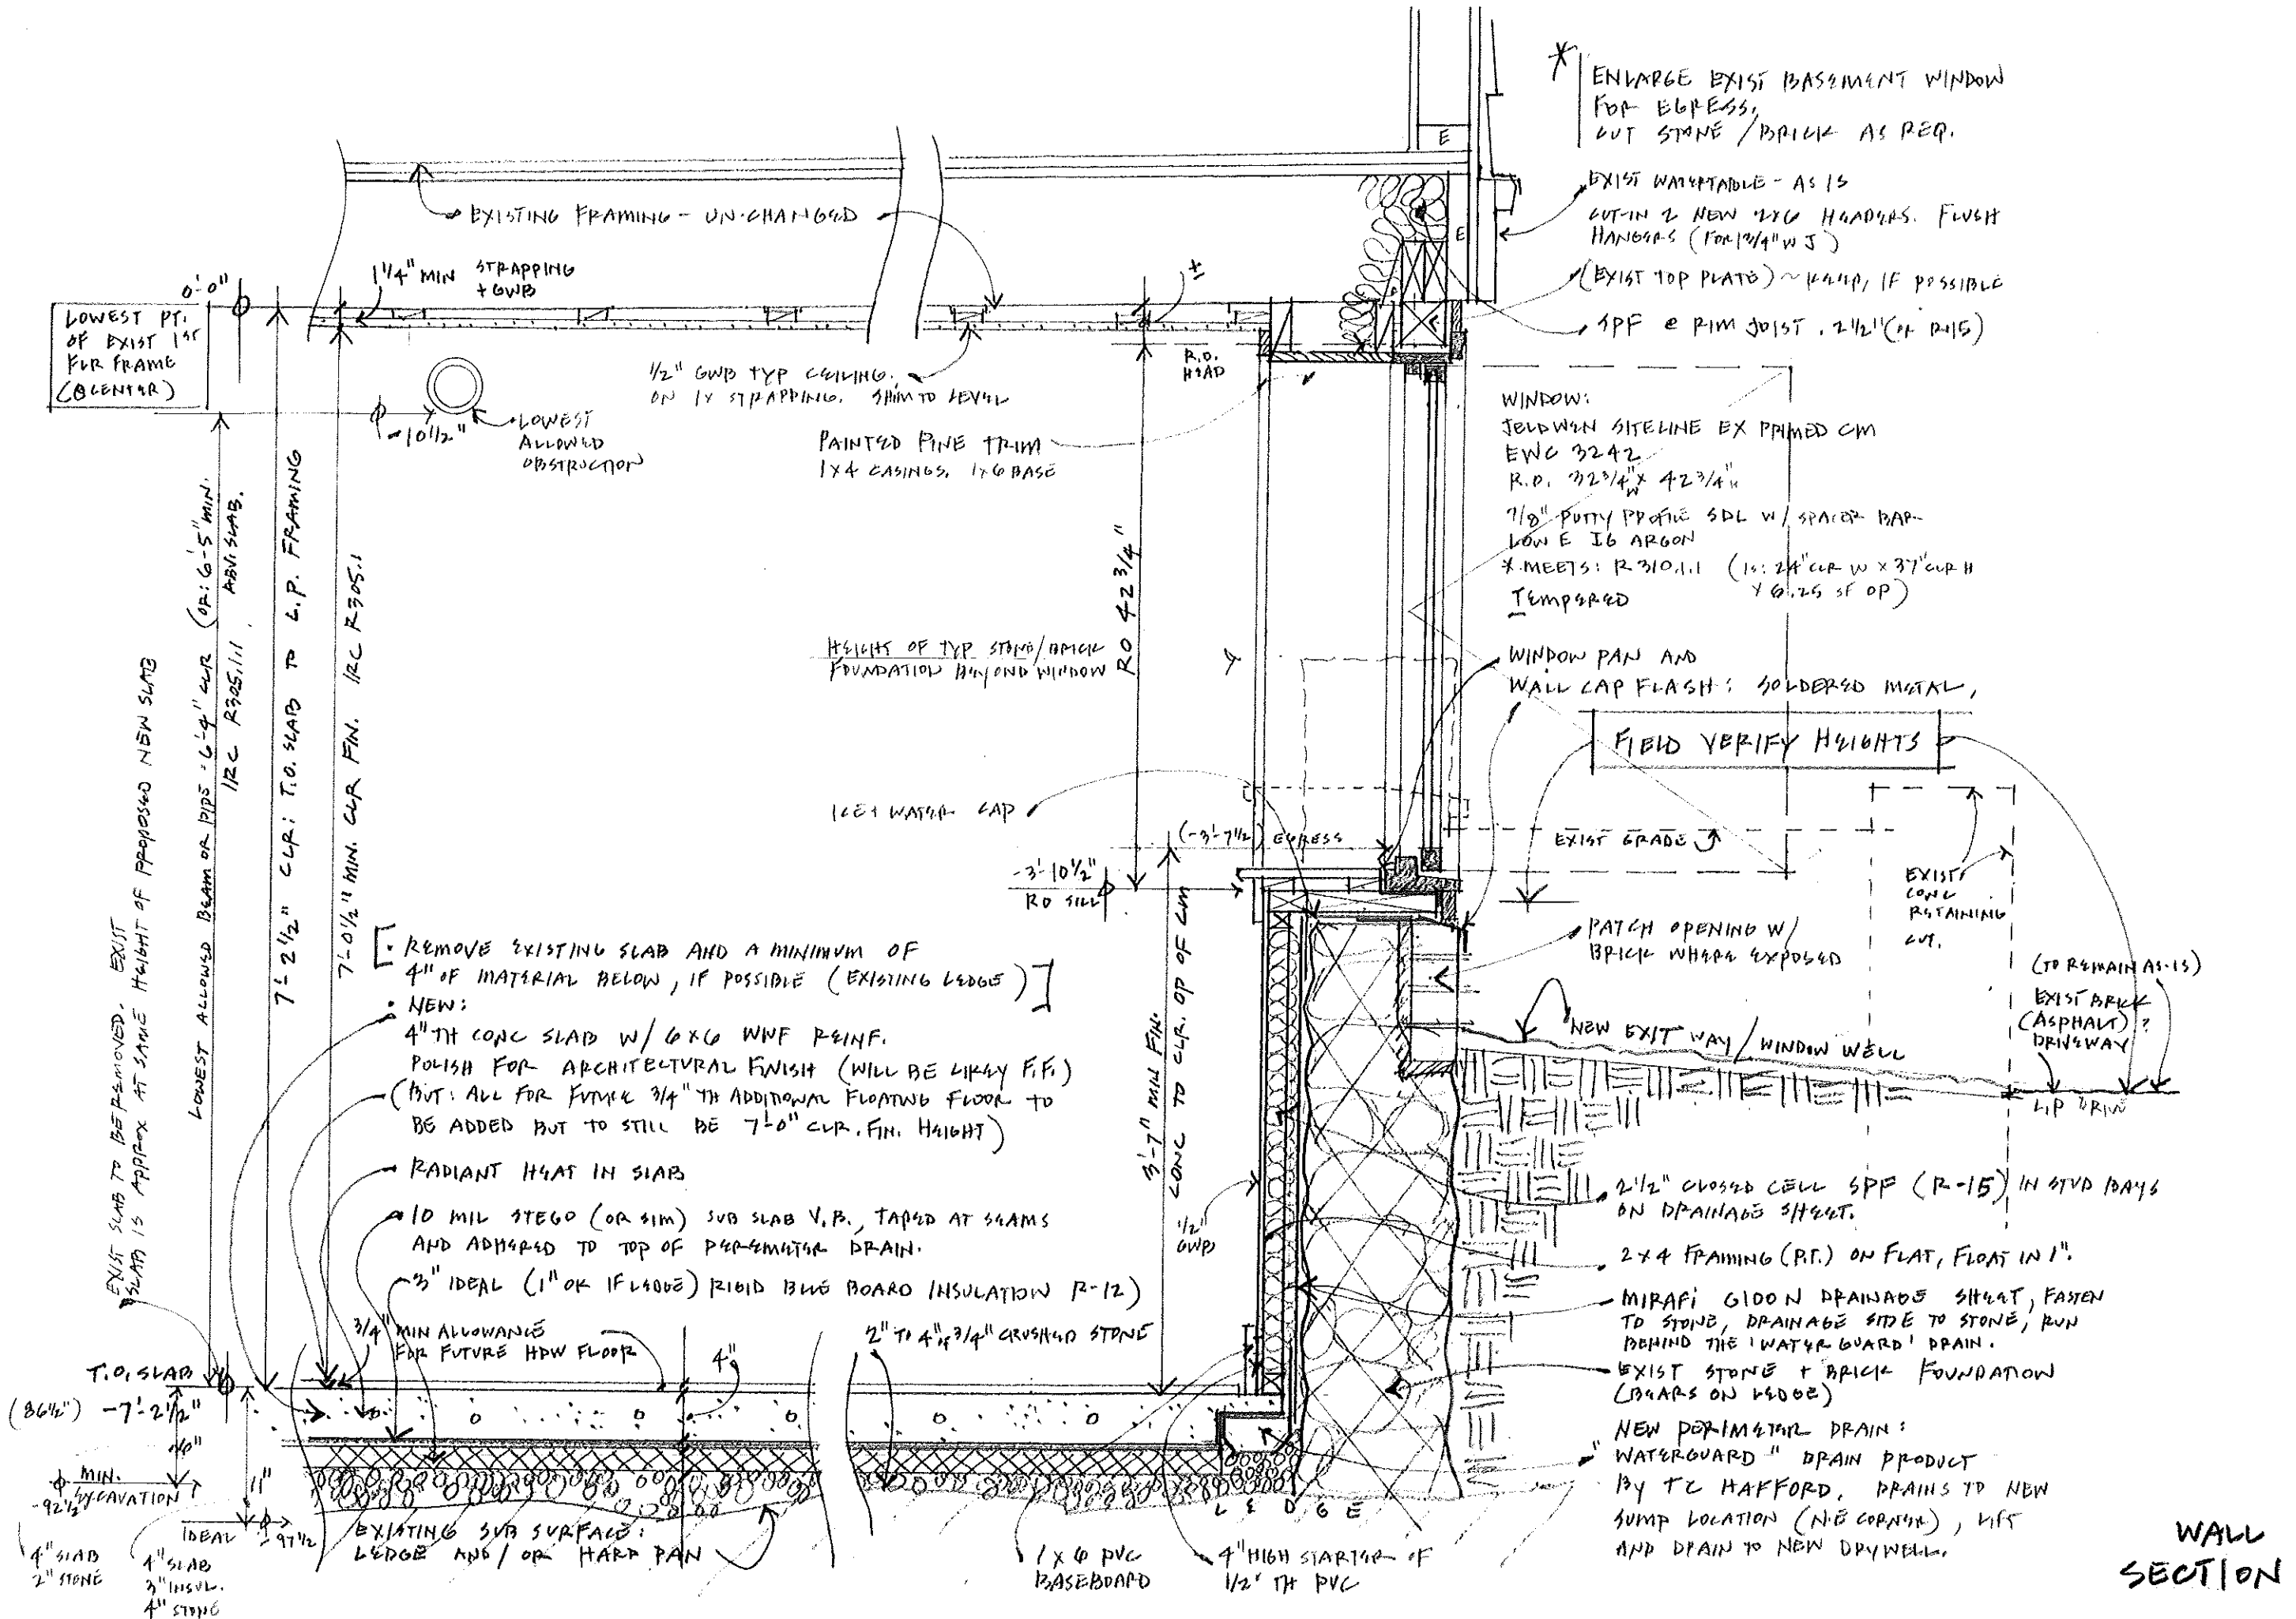 * ENLARGE EXIST BASEMENT WINDOW
FOR EGRESS.
CUT STONE / BRICK AS REQ.
EXIST WATERTABLE - AS IS
CUT-IN 2 NEW 2X6 HEADERS. FLUSH
HANGERS (FOR 1 3/4" W J)
(EXIST TOP PLATE) ~ KEEP, IF POSSIBLE
SPF @ RIM JOIST. 2 1/2" (OR R-15)
E
E
EXISTING FRAMING - UN-CHANGED
1 1/4" MIN STRAPPING
+ GWB
±
0'-0"
LOWEST PT.
OF EXIST 1ST
FLR FRAME
(@ CENTER)
-10 1/2"
LOWEST
ALLOWED
OBSTRUCTION
1/2" GWB TYP CEILING.
ON 1X STRAPPING. SHIM TO LEVEL
R.O.
HEAD
PAINTED PINE TRIM
1X4 CASINGS. 1X6 BASE
WINDOW:
JELDWEN SITELINE EX PRIMED CM
EWC 3242
R.O. 32 3/4" W X 42 3/4" H
7/8" PUTTY PROFILE SDL W/ SPACER BAR
LOW E IG ARGON
* MEETS: R310.1.1 (IS: 24" CLR W X 37" CLR H
X 6.25 SF OP)
TEMPERED
RO 42 3/4"
HEIGHT OF TYP STONE/BRICK
FOUNDATION BEYOND WINDOW
WINDOW PAN AND
WALL CAP FLASH: SOLDERED METAL,
FIELD VERIFY HEIGHTS
ICE + WATER CAP
(-3'-7 1/2") EGRESS
-3'-10 1/2"
RO SILL
EXIST GRADE
EXIST
CONC
RETAINING
CUT.
PATCH OPENING W/
BRICK WHERE EXPOSED
(TO REMAIN AS-IS)
EXIST BRICK
(ASPHALT) ?
DRIVEWAY
NEW EXIT WAY / WINDOW WELL
EXIST SLAB TO BE REMOVED. EXIST
SLAB IS APPROX AT SAME HEIGHT OF PROPOSED NEW SLAB
LOWEST ALLOWED BEAM OR PIPE = 6'-4" CLR (OR: 6'-5" MIN.
ABV. SLAB.
IRC R305.1.1
7'-2 1/2" CLR: T.O. SLAB TO L.P. FRAMING
7'-0 1/2" MIN. CLR FIN. IRC R305.1
[· REMOVE EXISTING SLAB AND A MINIMUM OF
4" OF MATERIAL BELOW, IF POSSIBLE (EXISTING LEDGE)]
· NEW:
4" TH CONC SLAB W/ 6X6 WWF REINF.
POLISH FOR ARCHITECTURAL FINISH (WILL BE LIKELY F.F.)
(BUT: ALL FOR FUTURE 3/4" TH ADDITIONAL FLOATING FLOOR TO
BE ADDED BUT TO STILL BE 7'-0" CLR. FIN. HEIGHT)
RADIANT HEAT IN SLAB
10 MIL STEGO (OR SIM) SUB SLAB V.B., TAPED AT SEAMS
AND ADHERED TO TOP OF PEREMETER DRAIN.
3" IDEAL (1" OK IF LEDGE) RIGID BLUE BOARD INSULATION R-12)
3/4" MIN ALLOWANCE
FOR FUTURE HDW FLOOR
4"
2" TO 4" OF 3/4" CRUSHED STONE
3'-7" MIN FIN.
CONC TO CLR. OP OF CM
1/2"
GWB
2 1/2" CLOSED CELL SPF (R-15) IN STUD BAYS
ON DRAINAGE SHEET.
2X4 FRAMING (P.T.) ON FLAT, FLOAT IN 1".
MIRAFI G100N DRAINAGE SHEET, FASTEN
TO STONE, DRAINAGE SIDE TO STONE, RUN
BEHIND THE 'WATER GUARD' DRAIN.
EXIST STONE + BRICK FOUNDATION
(BEARS ON LEDGE)
NEW PERIMETER DRAIN:
"WATERGUARD" DRAIN PRODUCT
BY TC HAFFORD. DRAINS TO NEW
SUMP LOCATION (N.E CORNER), LIFT
AND DRAIN TO NEW DRYWELL.
T.O. SLAB
(86 1/2") -7'-2 1/2"
6"
11"
MIN.
EXCAVATION
-92 1/2
IDEAL
-97 1/2
4" SLAB
2" STONE
4" SLAB
3" INSUL.
4" STONE
EXISTING SUB SURFACE:
LEDGE AND / OR HARD PAN
L E D G E
1 X 6 PVC
BASEBOARD
4" HIGH STARTER OF
1/2" TH PVC
WALL
SECTION